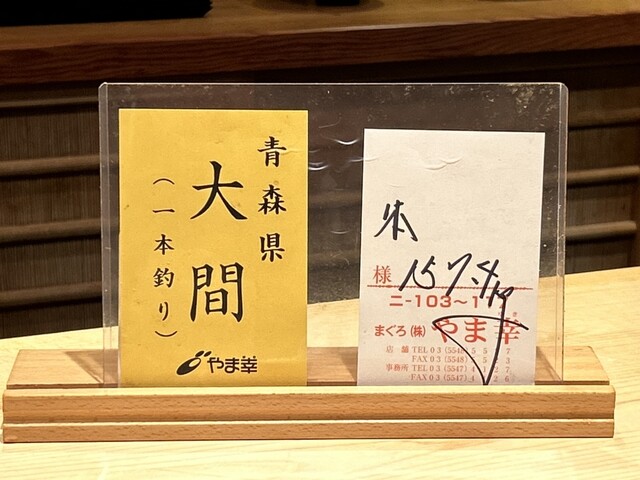 青森県
大間
(一本釣り)
やま幸
様
157.4
ニ-103~1
まぐろ(株)やま幸
店舗 TEL 03 (5548)
FAX 03 (5548)
事務所 TEL 03 (5547)
FAX 03 (5547)